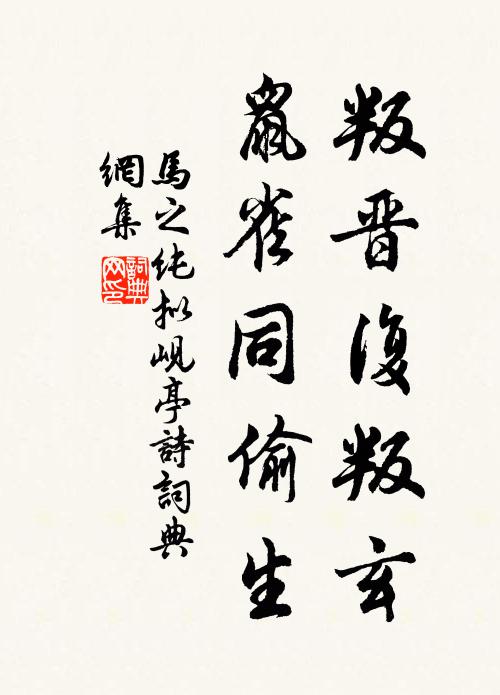 叛晋復叛玄
鼠雀同偷生
馬之純拟峴亭詩詞典
網集
詞典網印